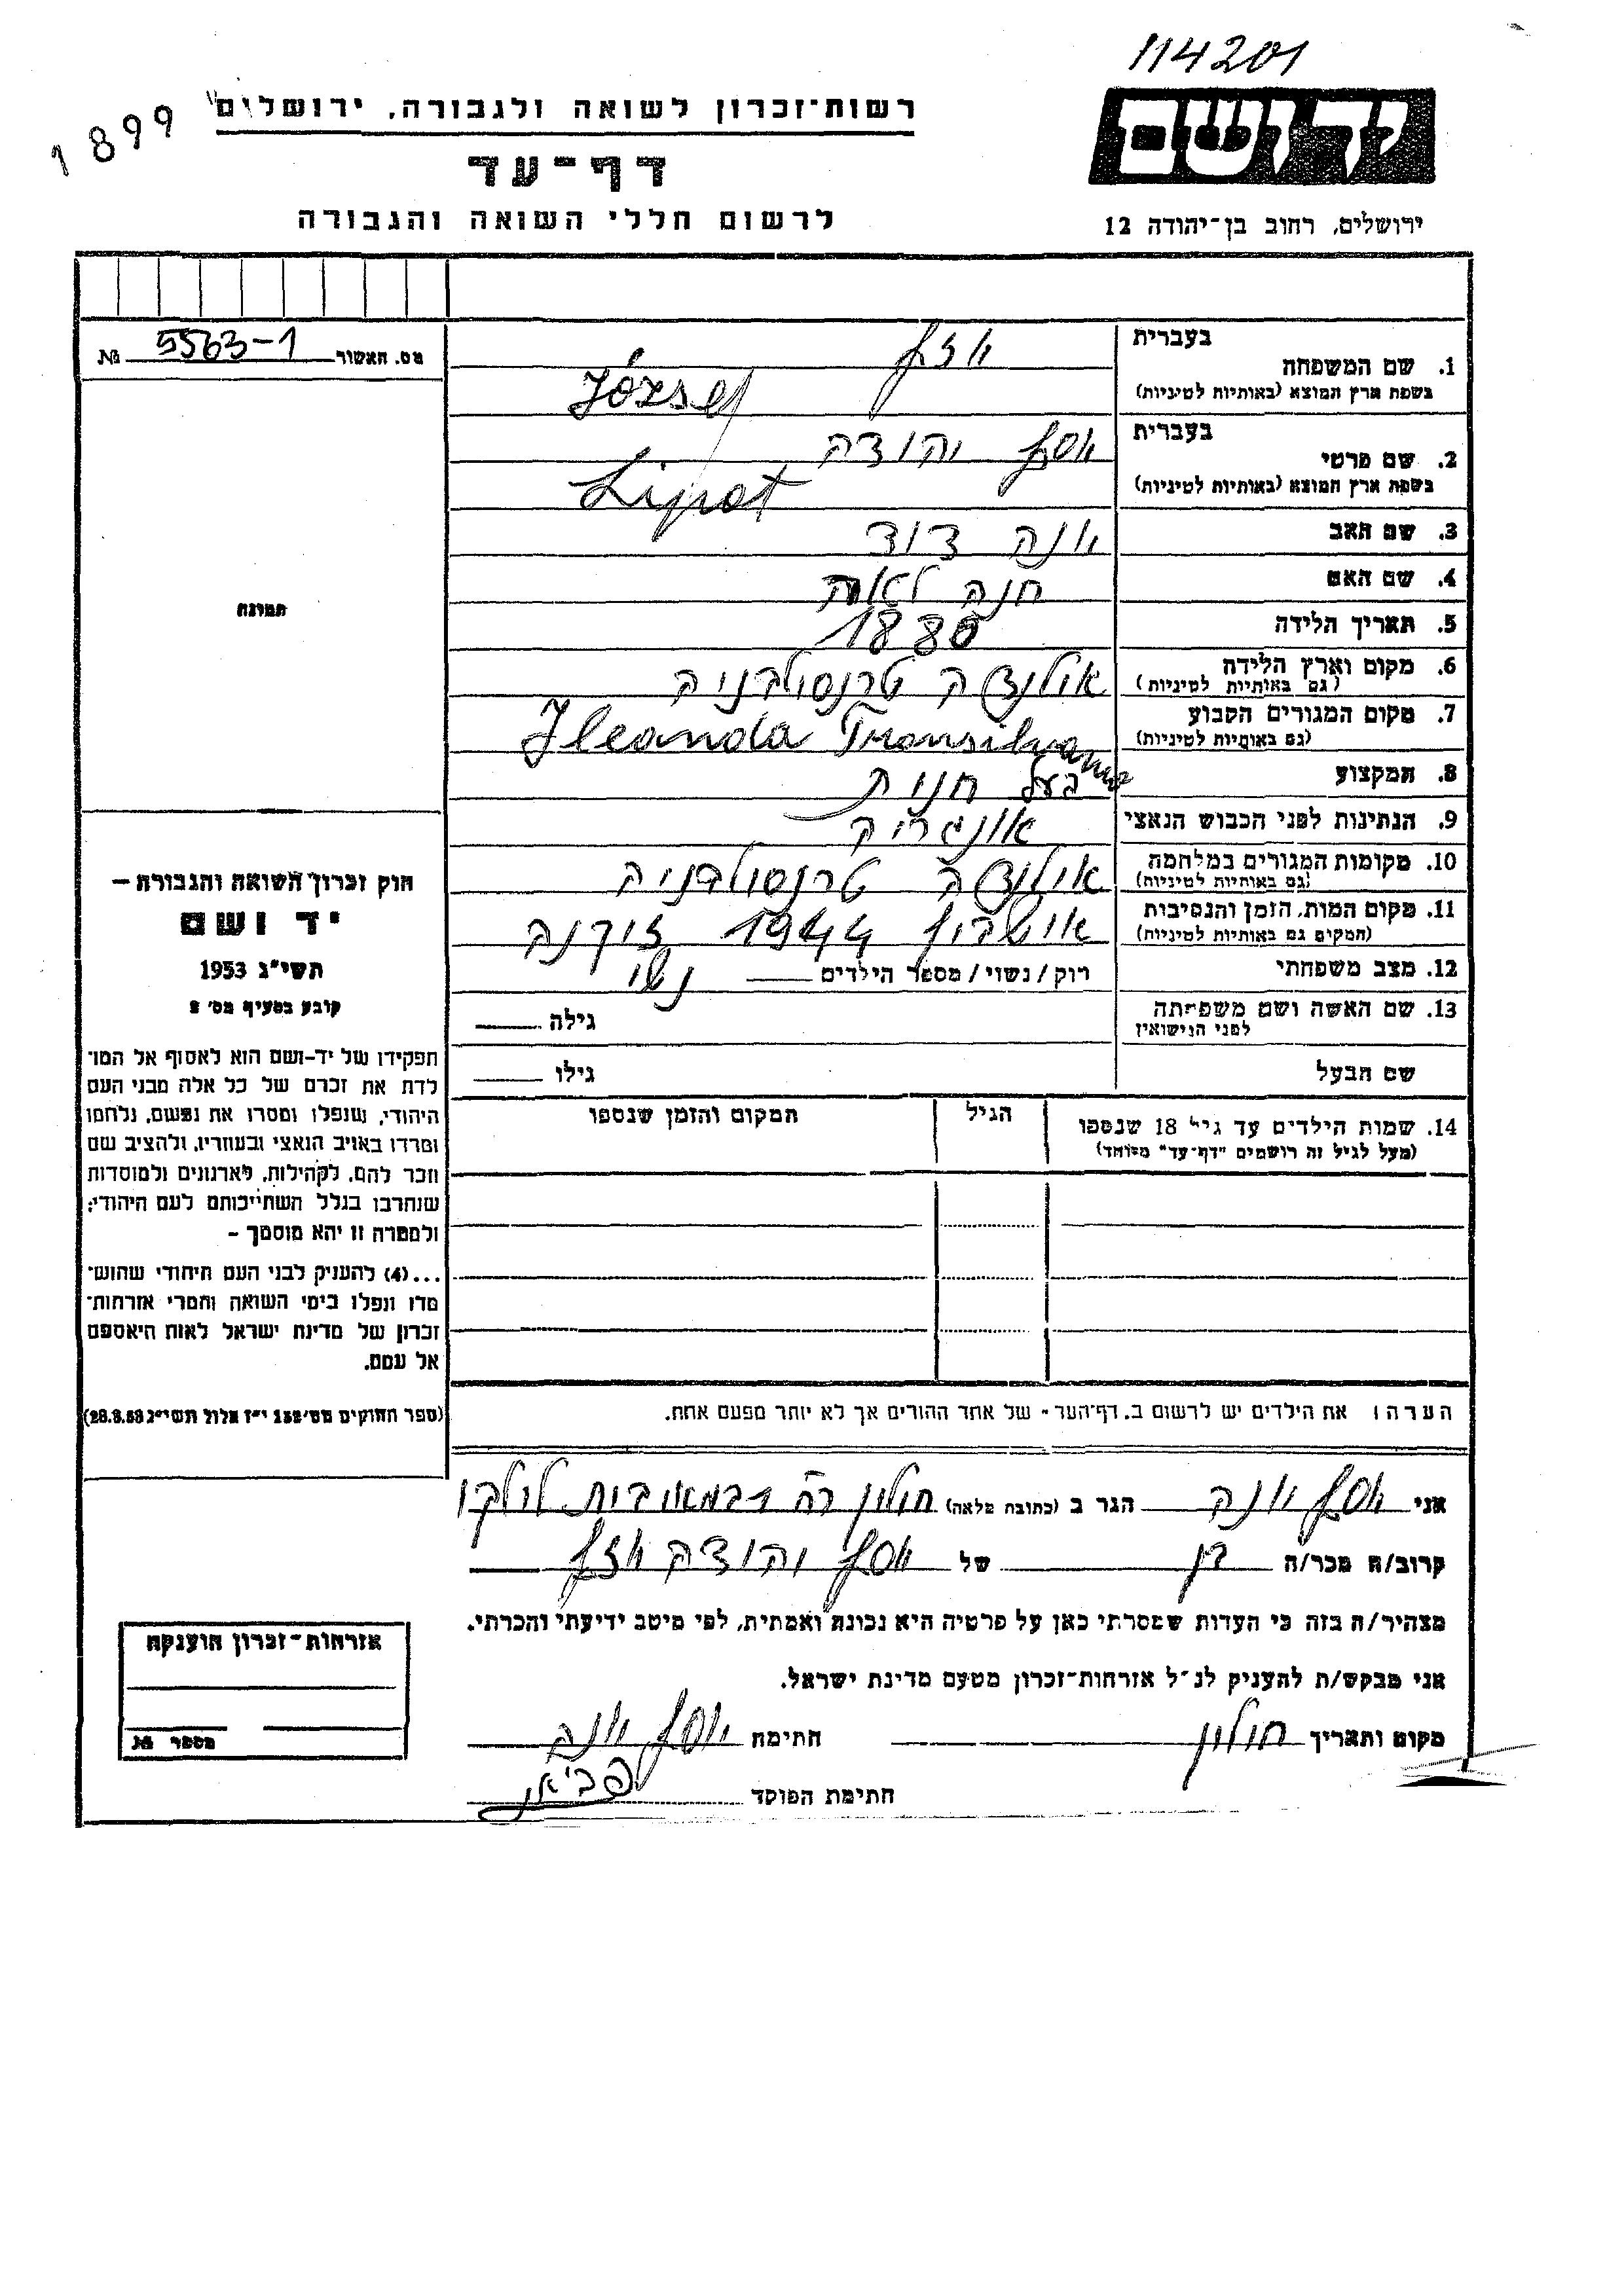 114201
1899
רשות־זכרון לשואה ולגבורה, ירושלים
יד ושם
דף־עד
לרשום חללי השואה והגבורה
ירושלים, רחוב בן־יהודה 12
מס. האשור 5563-1 №
תמונה
חוק זכרון השואה והגבורה –
יד ושם
תשי״ג 1953
קובע בסעיף מס׳ 2
תפקידו של יד-ושם הוא לאסוף אל המו־
לדת את זכרם של כל אלה מבני העם
היהודי, שנפלו ומסרו את נפשם, נלחמו
ומרדו באויב הנאצי ובעוזריו, ולהציב שם
וזכר להם, לקהילות, לארגונים ולמוסדות
שנחרבו בגלל השתייכותם לעם היהודי;
ולמטרה זו יהא מוסמך –
...(4) להעניק לבני העם היהודי שהוש־
מדו ונפלו בימי השואה והמרי אזרחות־
זכרון של מדינת ישראל לאות היאספם
אל עמם.
(ספר החוקים מס׳ 132 י״ז אלול תשי״ג 28.8.53)
בעברית יוזף
1. שם המשפחה
בשפת ארץ המוצא (באותיות לטיניות) József
בעברית יוסף יהודה
2. שם פרטי
בשפת ארץ המוצא (באותיות לטיניות) Lipot
3. שם האב יונה דוד
4. שם האם חנה לאה
5. תאריך הלידה 1880
6. מקום וארץ הלידה אילנדה טרנסילבניה
(גם באותיות לטיניות)
7. מקום המגורים הקבוע Ileanda Transilvania
(גם באותיות לטיניות)
8. המקצוע בעל חנות
9. הנתינות לפני הכבוש הנאצי אונגריה
10. מקומות המגורים במלחמה אילנדה טרנסילבניה
(גם באותיות לטיניות)
11. מקום המות, הזמן והנסיבות אושביץ 1944
(המקום גם באותיות לטיניות)
12. מצב משפחתי רוק/נשוי/מספר הילדים נשוי
13. שם האשה ושם משפחתה גילה
לפני הנישואין
שם הבעל גילו
14. שמות הילדים עד גיל 18 שנספו הגיל המקום והזמן שנספו
(מעל לגיל זה רושמים "דף־עד" מיוחד)
הערה: את הילדים יש לרשום ב. דף־העד - של אחד ההורים אך לא יותר מפעם אחת.
אני יוסף יונה הגר ב (כתובת מלאה) חולון רח
קרוב/ה מכר/ה בן של יוסף יהודה יוזף
מצהיר/ה בזה כי העדות שמסרתי כאן על פרטיה היא נכונה ואמתית, לפי מיטב ידיעתי והכרתי.
אני מבקש/ת להעניק לנ״ל אזרחות־זכרון מטעם מדינת ישראל.
מקום ותאריך חולון חתימה יוסף יונה
חתימת הפוקד
אזרחות־זכרון הוענקה
מספר №